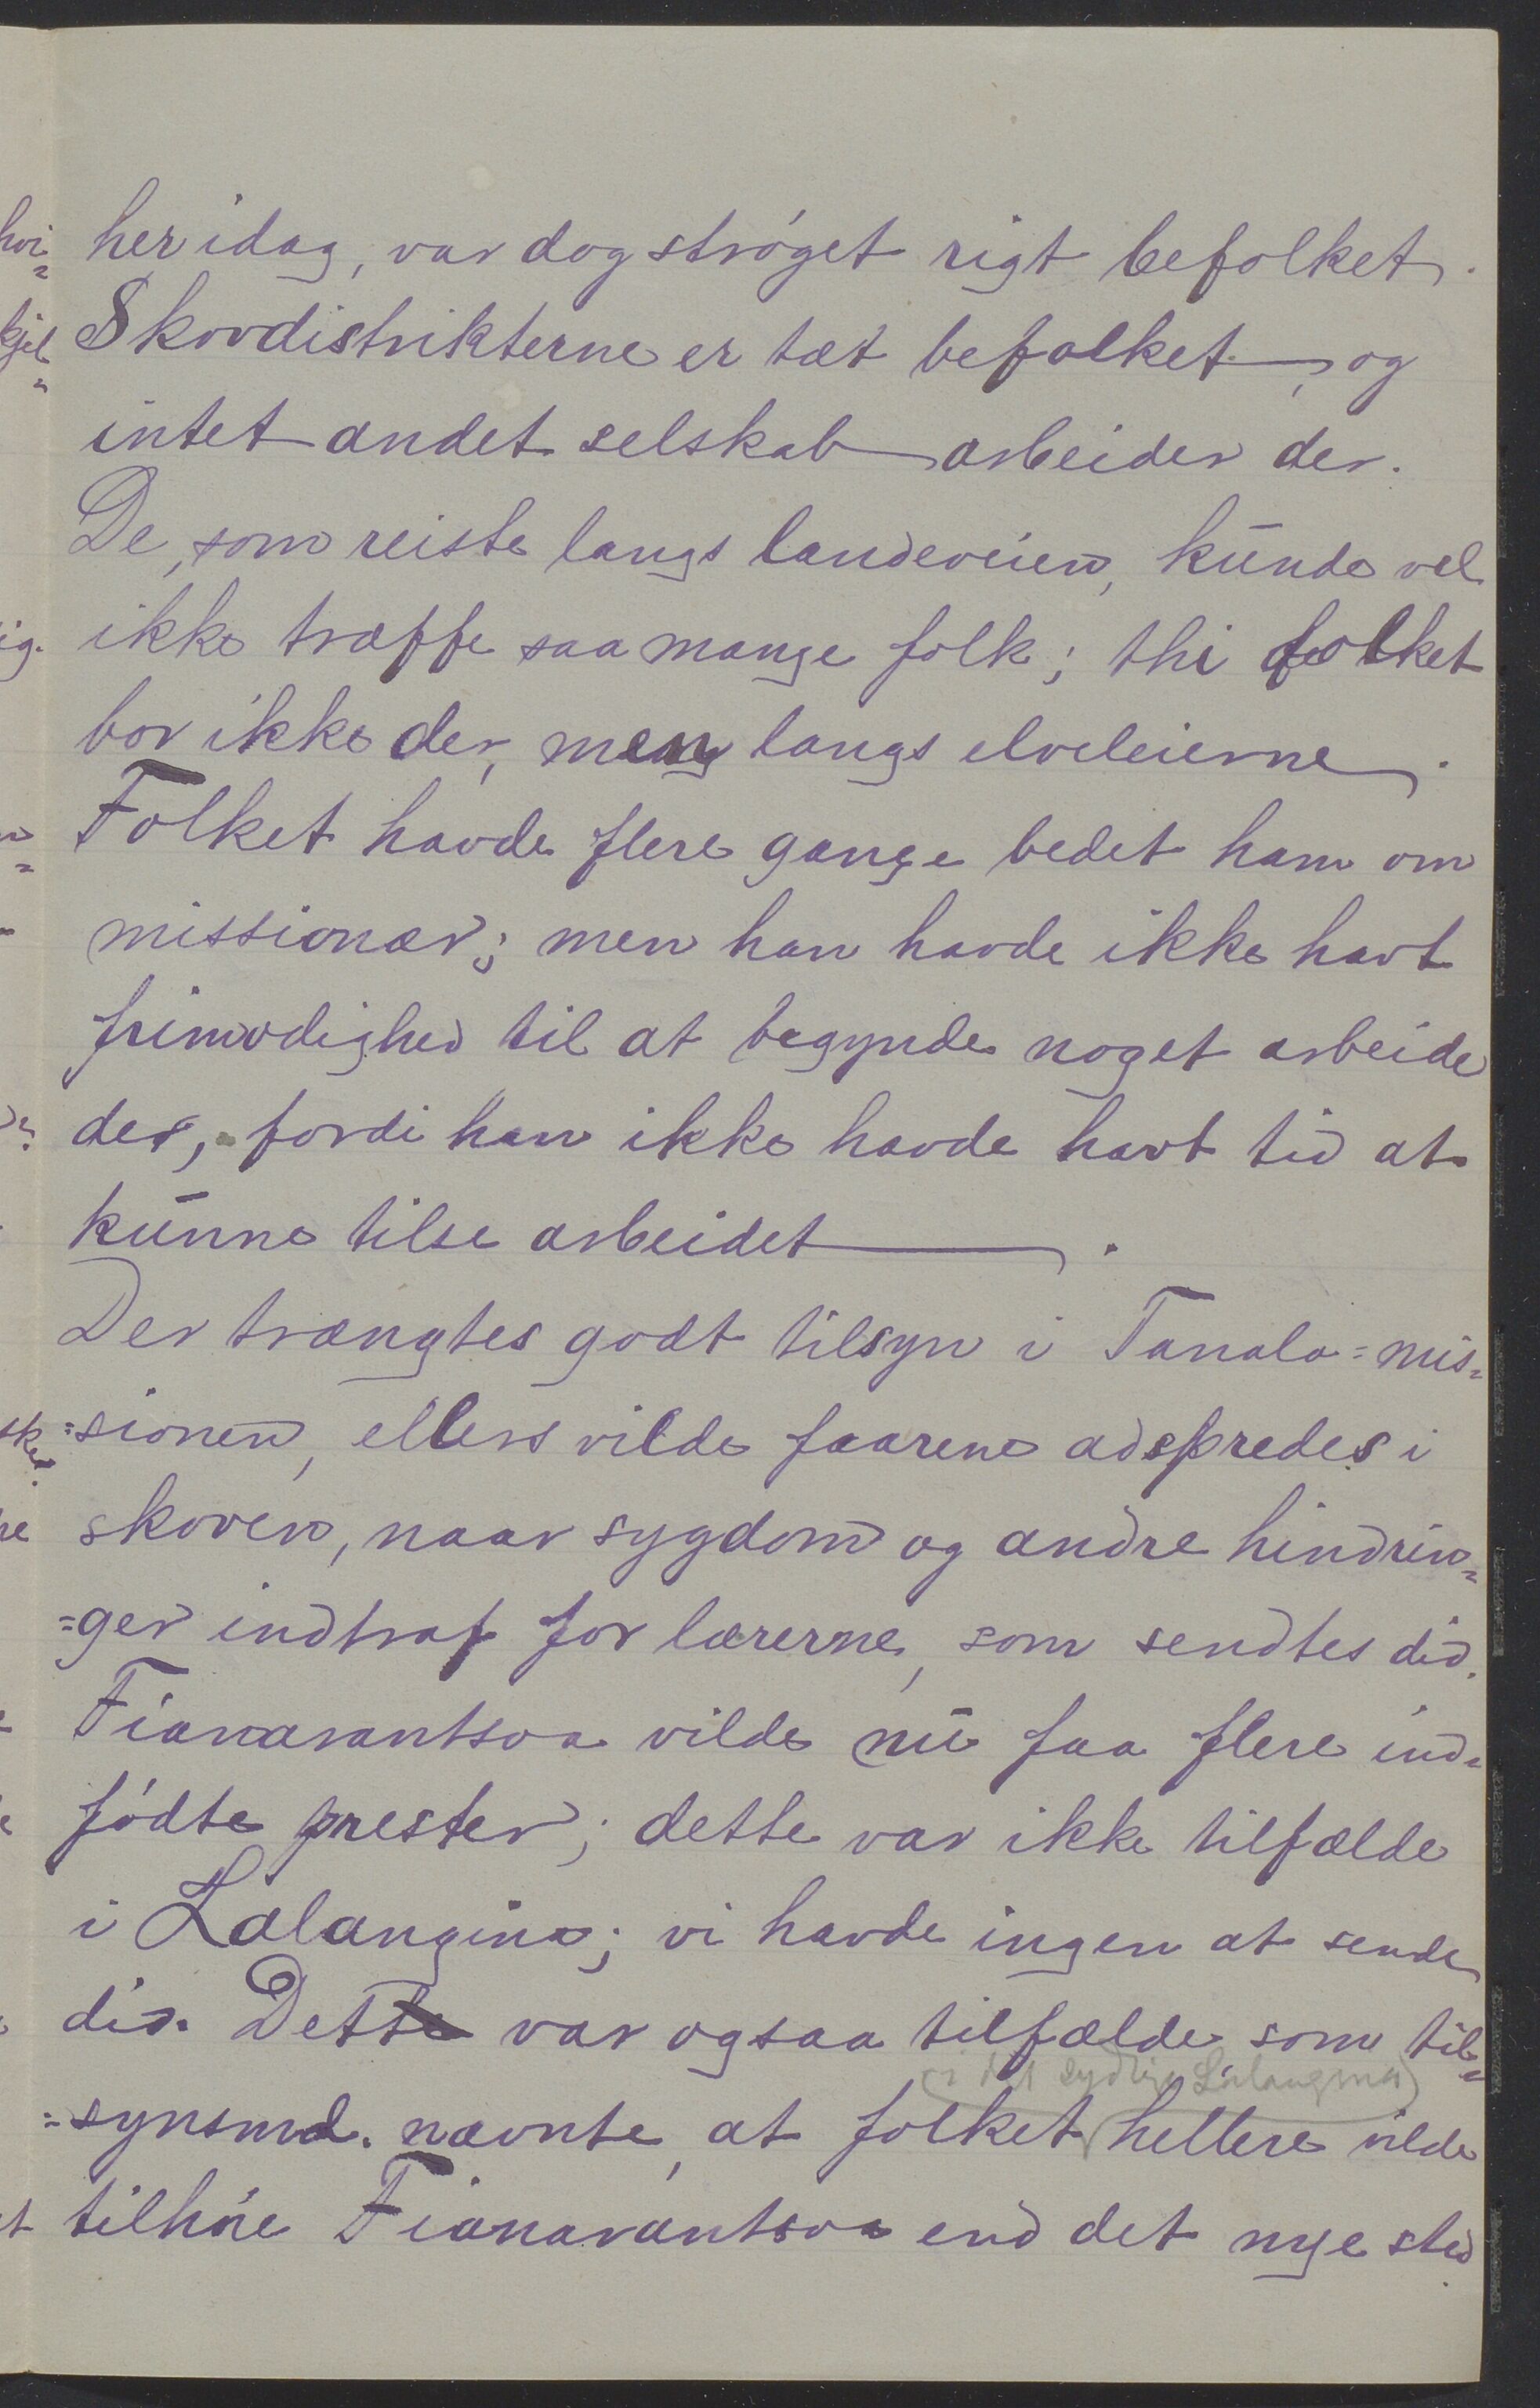 her idag, var dog strøget rigt befolket.
Skovdistrikterne er tæt befolket, og
intet andet selskab arbeider der.
De, som reiste langs landeveien, kunde vel
ikke træffe saa mange folk; thi folket
bor ikke der, men langs elveleierne.
Folket havde flere gange bedet ham om
missionær; men han havde ikke havt
frimodighed til at begynde noget arbeide
der, fordi han ikke havde havt tid at
kunne tilse arbeidet.
Der trængtes godt tilsyn i Tanala=mis=
=sionen, ellers vilde faarene adspredes i
skoven, naar sygdom og andre hindrin=
=ger indtraf for lærerne, som sendtes did.
Fianarantsoa vilde nu faa flere ind=
fødte prester; dette var ikke tilfælde
i Lalangina; vi havde ingen at sende
did. Dette var ogsaa tilfælde, som til=
(i det sydlige Lalangina)
=synsmd. nævnte, at folket hellere vilde
tilhøre Fianarantsoa end det nye sted